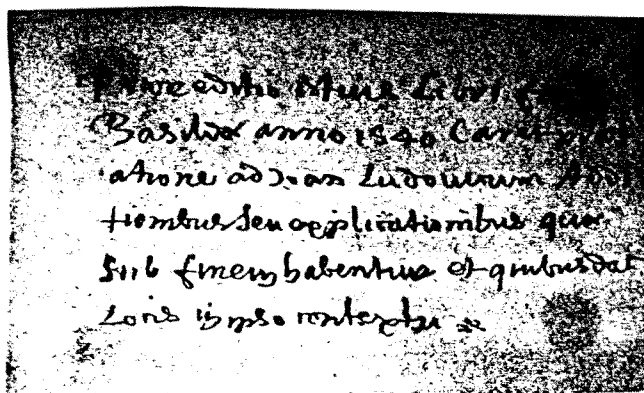 editio huius Libri
Basileae anno 1540 cum
atione ad Joan Ludovicum
tionibus seu explicationibus quae
sub finem habentur et quibusdā
Locis in ipso contextu